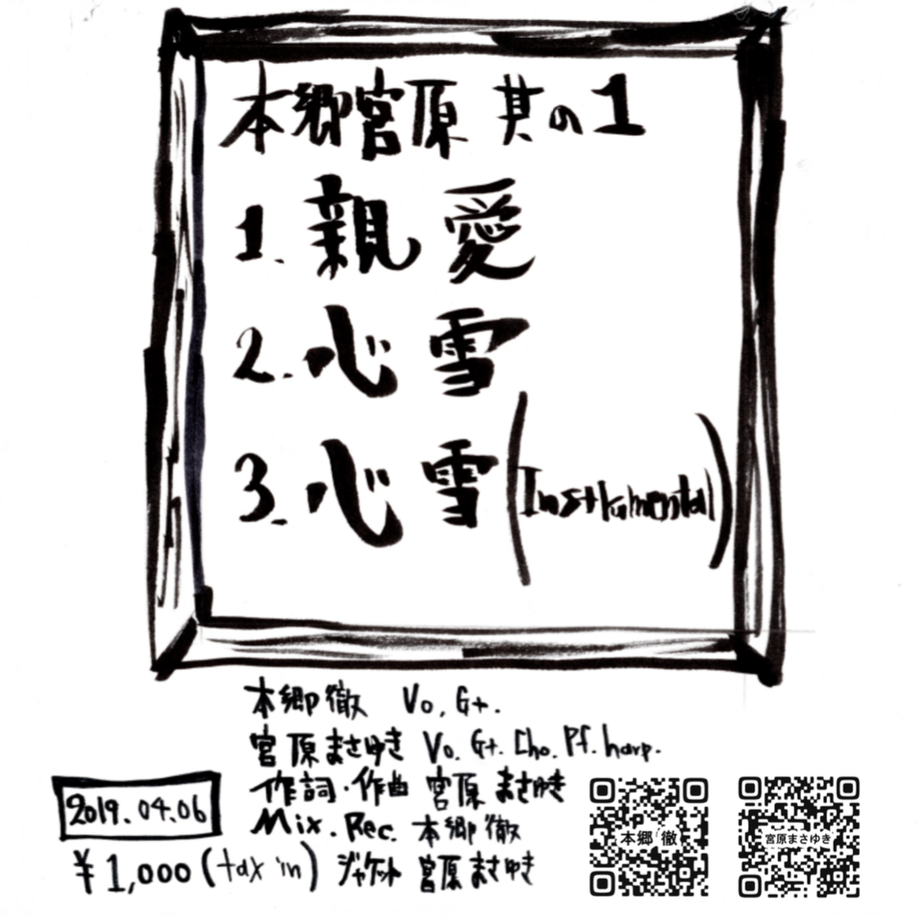 本郷宮原 其の1
1. 親愛
2. 心雪
3. 心雪(Instrumental)
本郷徹 Vo. Gt.
宮原まさゆき Vo. Gt. Cho. Pf. harp.
作詞・作曲 宮原まさゆき
Mix. Rec. 本郷徹
ジャケット 宮原まさゆき
2019.04.06
¥1,000(tax in)
本郷 徹
宮原まさゆき